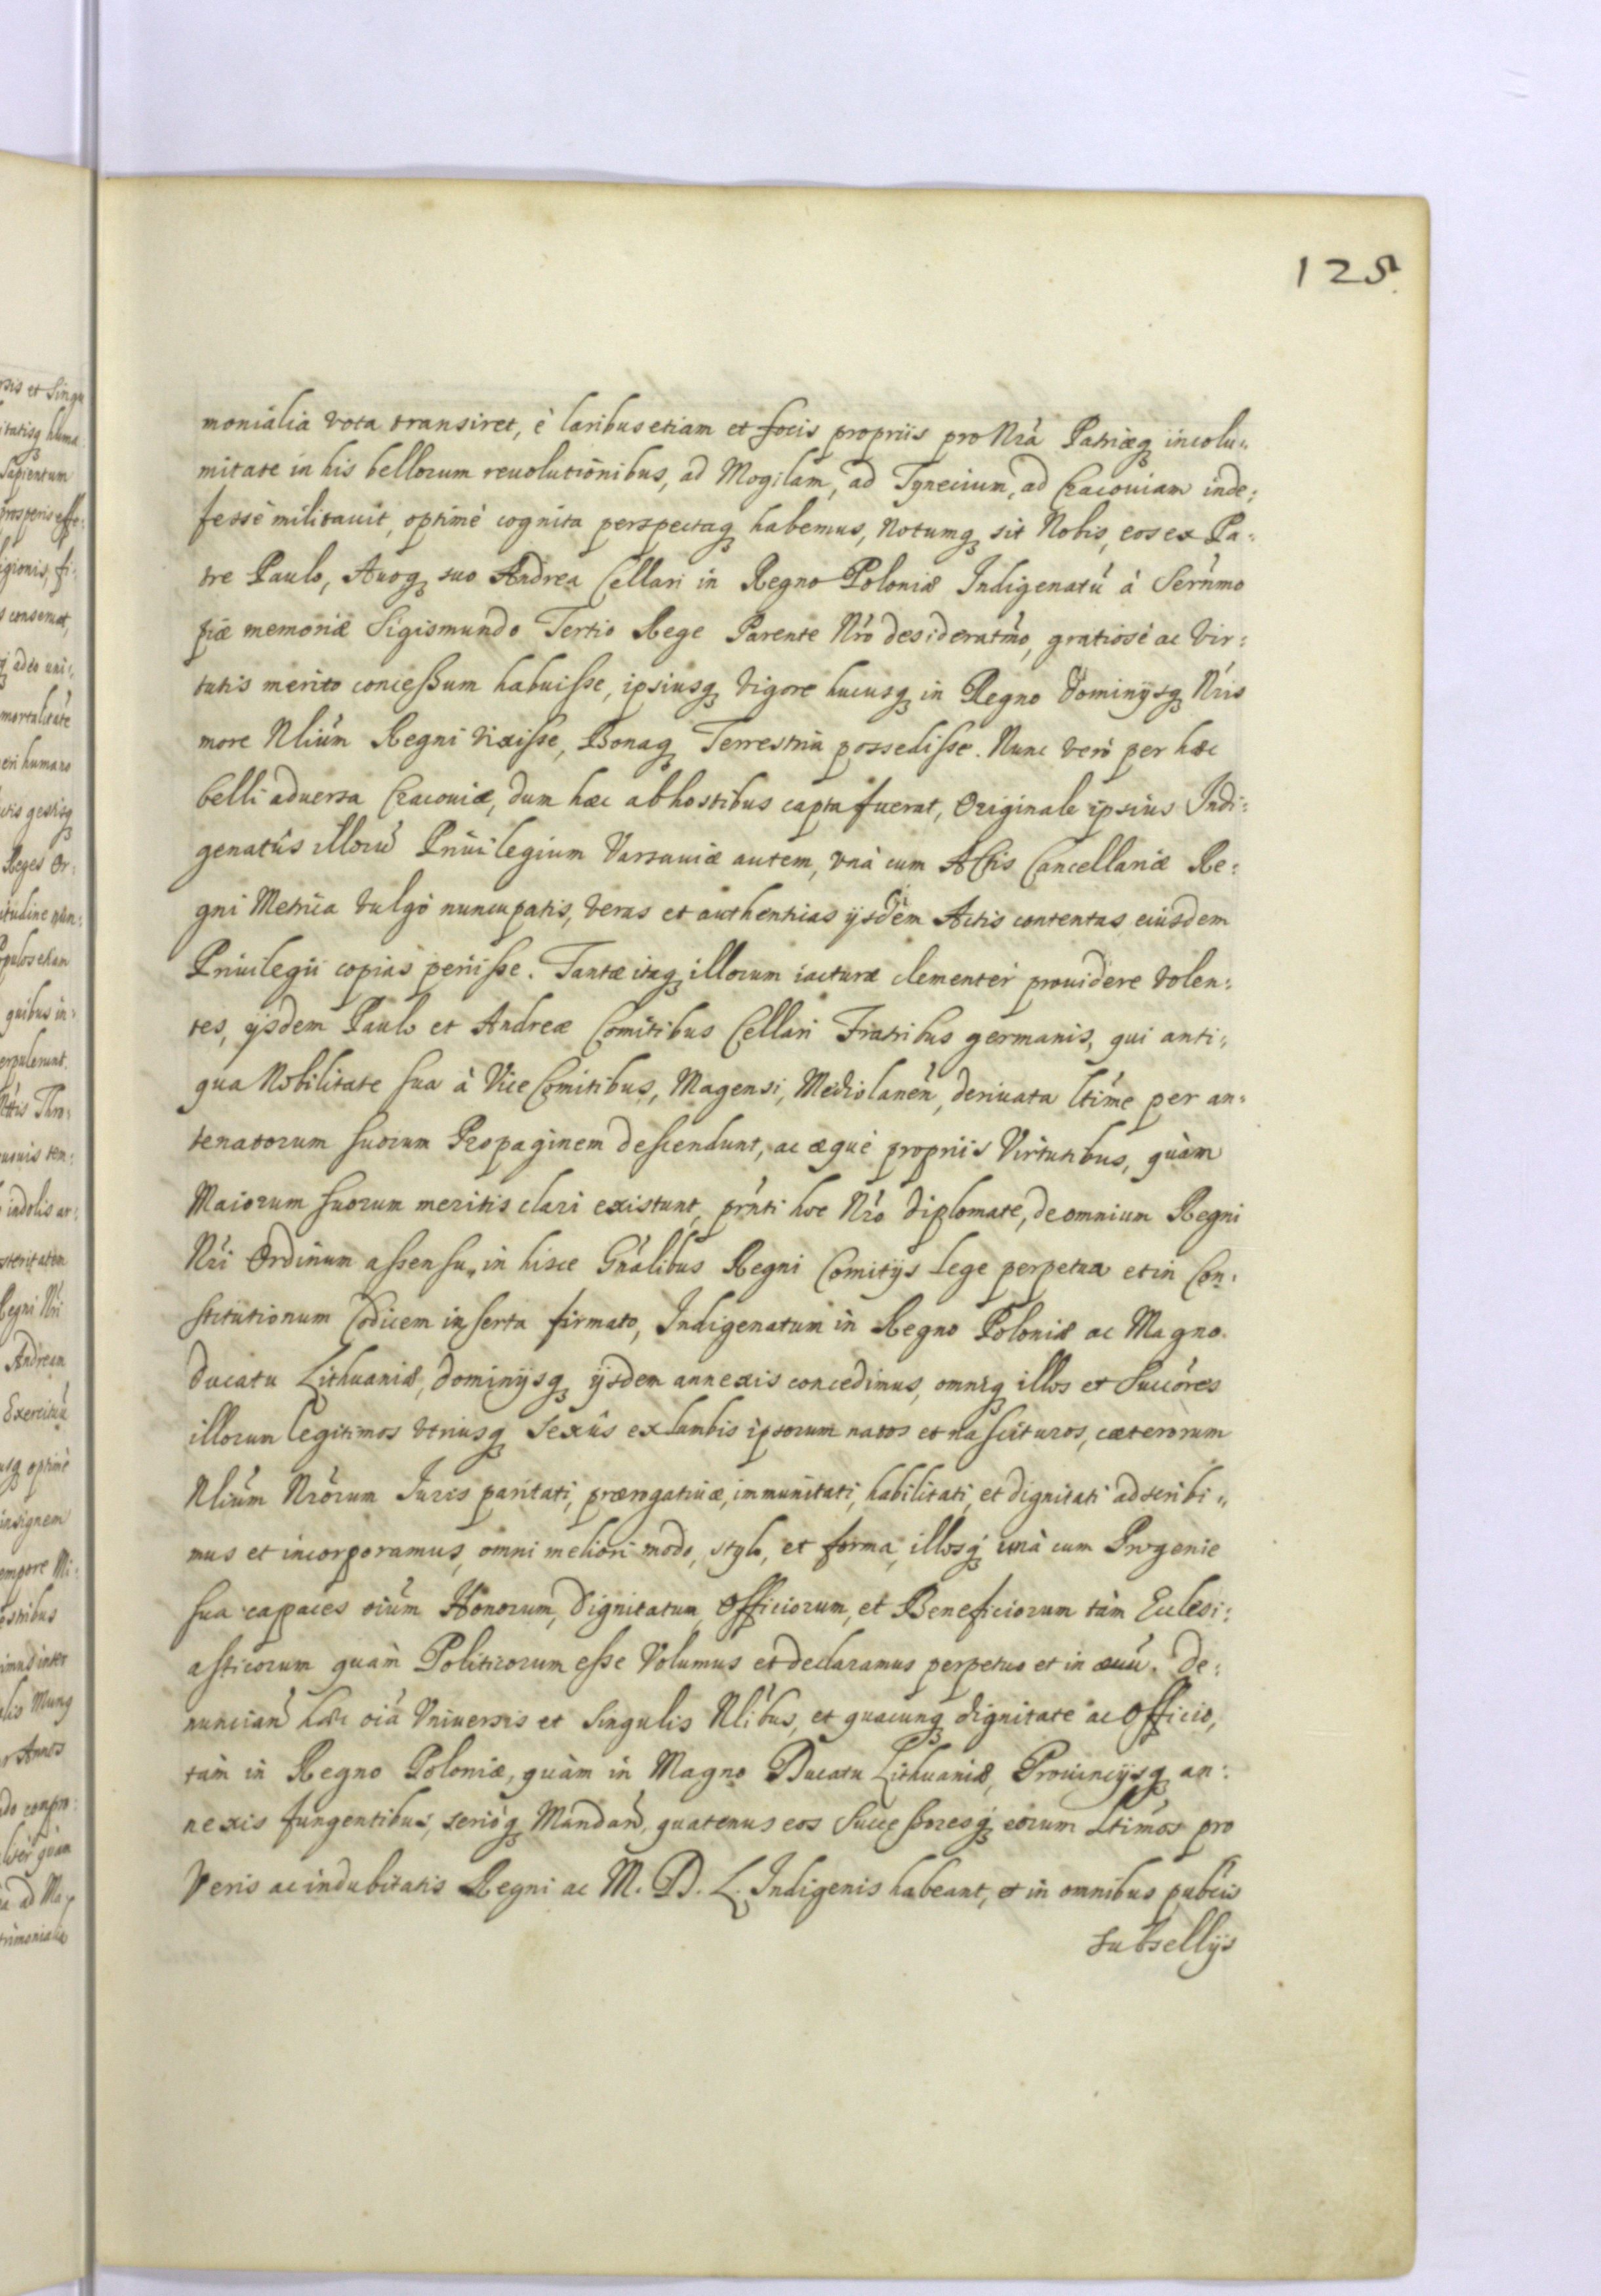 125
monialia vota transiret, è laribus etiam et focis propriis pro Nrá Patriæq incolu=
mitate in his bellorum reuolutionibus, ad Mogilam, ad Tynecium, ad Cracouiam inde=
fessè militauit, optimè cognita perspectaq habemus, Notumq sit Nobis, eos ex Pa=
tre Paulo, Auoq suo Andrea Cellari in Regno Poloniæ Indigenatū à Serńmo
piæ memoriæ Sigismundo Tertio Rege Parente Nŕo desideratḿo, gratiosè ac Vir=
tutis merito concessum habuisse, ipsiusq vigore hucusq in Regno Dominijsq Nŕis
more Nliúm Regni vixisse, Bonaq Terrestria possedisse. Nunc verò per hæc
belli aduersa Cracouiæ, dum hæc ab hostibus capta fuerat, Originale ipsius Indi=
genatûs illorū Priuilegium Varsauiæ autem, vnà cum Actis Cancellariæ Re=
gni Metrica vulgò nuncupatis, veras et authenticas ijsdem Actis contentas eiusdem
Priuilegii copias periisse. Tantæ itaq illorum iacturæ clementer prouidere volen=
tes, ijsdem Paulo et Andreæ Comitibus Cellari Fratribus germanis, qui anti=
qua Nobilitate sua à Vice Comitibus, Magensi, Mediolanéń, deriuata ltíme per an=
tenatorum suorum Propaginem descendunt, ac æquè propriis Virtutibus, quàm
Maiorum suorum meritis clari existunt, prńti hoc Nŕo diplomate, de omnium Regni
Nŕi Ordinum assensu, in hisce Gńalibus Regni Comitijs lege perpetua et in Con=
stitutionum Codicem inserta firmato, Indigenatum in Regno Poloniæ ac Magno
Ducatu Lithuaniæ, dominijsq ijsdem annexis concedimus, omniq illos et Succóres
illorum legitimos vtriusq sexûs ex lumbis ipsorum natos et nascituros, cæterorum
Nliúm Nrórum Iuris paritati, prærogatiuæ, immunitati, habilitati, et dignitati adscribi=
mus et incorporamus, omni meliori modo, stylo, et forma, illosq́ unà cum Progenie
sua capaces oiúm Honorum, Dignitatum, Officiorum, et Beneficiorum tàm Ecclesi=
asticorum quàm Politicorum esse Volumus et declaramus perpetuo et in æuū. De=
nuncian̄ hæc oiá Vniuersis et Singulis Nlíbus, et quacunq dignitate ac Officio,
tàm in Regno Poloniæ, quàm in Magno Ducatu Lithuaniæ, Prouincijsq an=
nexis fungentibus, serióq Mandan̄, quatenus eos Successoresq́ eorum ltimós pro
Veris ac indubitatis Regni ac M. D. L. Indigenis habeant, et in omnibus pubcis
subsellijs